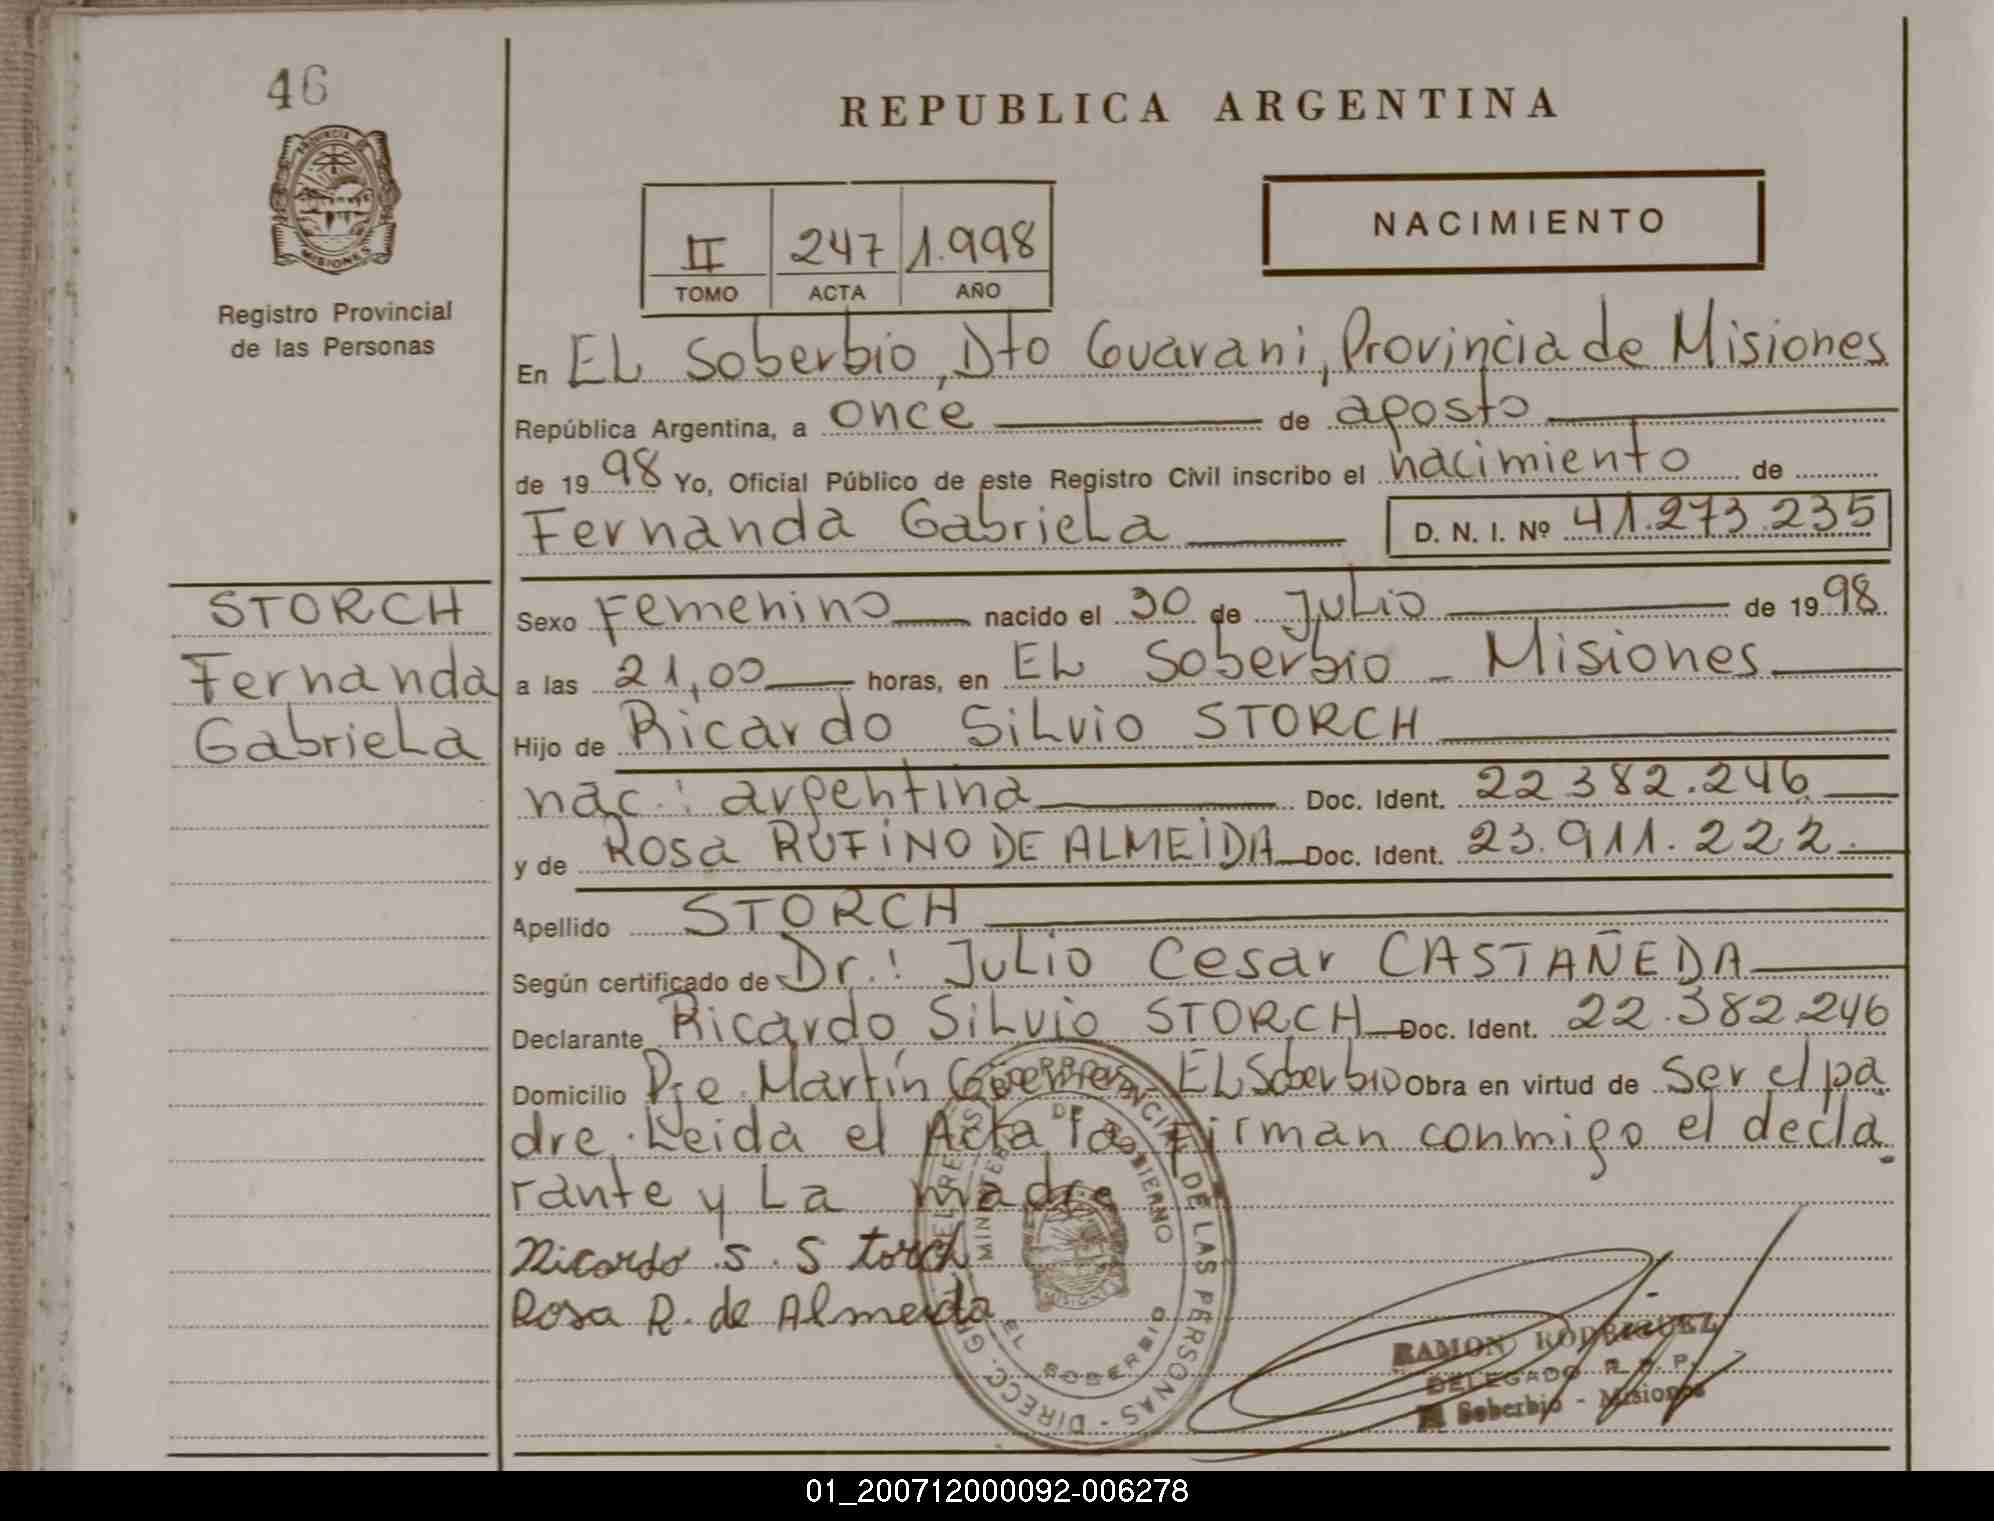 46
REPUBLICA ARGENTINA
PROVINCIA DE
MISIONES
Registro Provincial
de las Personas
NACIMIENTO
II 247 1.998
TOMO ACTA AÑO
En EL Soberbio, Dto Guarani, Provincia de Misiones
República Argentina, a once de agosto
de 1998 Yo, Oficial Público de este Registro Civil inscribo el nacimiento de
Fernanda Gabriela D. N. I. Nº 41.273.235
STORCH
Fernanda
Gabriela
Sexo Femenino nacido el 30 de Julio de 1998
a las 21,00 horas, en EL Soberbio - Misiones
Hijo de Ricardo Silvio STORCH
nac.: argentina Doc. Ident. 22.382.246
y de Rosa RUFINO DE ALMEIDA Doc. Ident. 23.911.222.
Apellido STORCH
Según certificado de Dr.: Julio Cesar CASTAÑEDA
Declarante Ricardo Silvio STORCH Doc. Ident. 22.382.246
Domicilio Martín - EL Soberbio Obra en virtud de Ser el pa
dre. Leida el Acta la Firman conmigo el decla
rante y La madre
Ricardo S. Storch
Rosa R. de Almeida
PROVINCIAL DE LAS PERSONAS - DIRECC. GRAL.
MINISTERIO DE GOBIERNO
EL SOBERBIO
RAMON RODRIGUEZ
DELEGADO R. P. P.
El Soberbio - Misiones
01_200712000092-006278